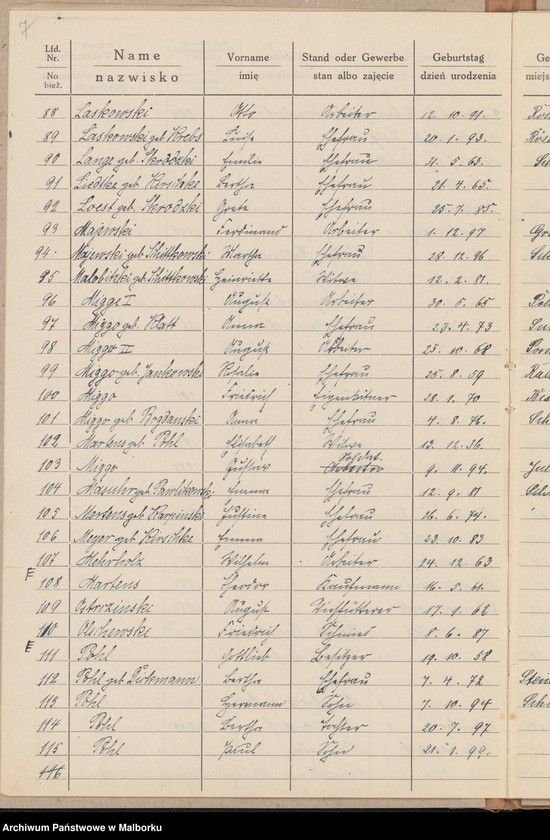 7
Lfd. Nr. Name Vorname Stand oder Gewerbe Geburtstag
No bież. nazwisko imię stan albo zajęcie dzień urodzenia
88 Laskowski Otto Arbeiter 12. 10. 91.
89 Laskowski geb. Krebs Luise Ehefrau 20. 1. 93.
90 Lange geb. Skrodzki Emilie Ehefrau 21. 5. 63.
91 Liedtke geb. Bertha Ehefrau 21. 4. 65.
92 Loest geb. Skrodzki Grete Ehefrau 25. 7. 85.
93 Majewski Ferdinand Arbeiter 1. 12. 97
94. Majewski geb. Schittkowski Martha Ehefrau 28. 12. 96
95 Malobitzki geb. Schittkowski Henriette Witwe 12. 2. 81.
96 Migge I August Arbeiter 30. 5. 65
97 Migge geb. Klatt Anna Ehefrau 23. 4. 73
98 Migge II August Arbeiter 23. 10. 68
99 Migge geb. Jankowski Rosalie Ehefrau 25. 8. 59
100 Migge Friedrich Eigenkätner 28. 1. 70
101 Migge geb. Bogdanski Anna Ehefrau 4. 8. 76.
102 Martens geb. Pohl Elisabeth Witwe 13. 12. 36.
103 Migge Gustav Soldat 9. 11. 94.
104 geb. Pawlikowski Emma Ehefrau 12. 9. 81
105 Martens geb. Justine Ehefrau 26. 6. 74.
106 Meyer geb. Kirschke Emma Ehefrau 23. 10. 83
107 Mehrholz Wilhelm Arbeiter 24. 12. 63
E 108 Martens Theodor Kaufmann 16. 5. 61.
109 Ostrzinski August Viehfütterer 17. 1. 62
110 Olschewski Friedrich Schmied 8. 6. 87
E 111 Pohl Gottlieb Besitzer 19. 10. 58
112 Pohl geb. Bertha Ehefrau 7. 4. 72
113 Pohl Hermann Sohn 7. 10. 94
114 Pohl Bertha Tochter 20. 7. 97
115 Pohl Paul Sohn 21. 1. 99.
116
Archiwum Państwowe w Malborku